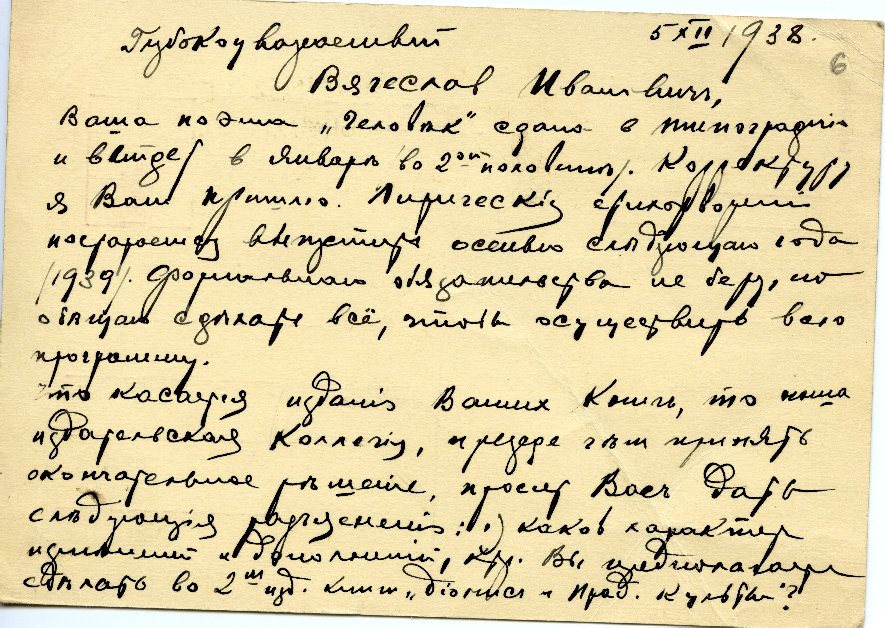 5 XII 1938.
6
Глубокоуважаемый
Вячеслав Ивановичъ,
Ваша поэма „Человѣк" сдана в типографію
и выйдет в Январѣ /во 2ой половинѣ/. Корректуру
я Вам пришлю. Лирическія стихотворенія
постараемся выпустить осенью слѣдующаго года
/1939/. Формальнаго обязательства не беру, но
обѣщаю сдѣлать всё, чтобы осуществить всю
программу.
Что касается изданія Ваших Книгъ, то наша
издательская Коллегія, прежде чѣм принять
окончательное рѣшеніе, просит Васъ дать
слѣдующія разъясненія: 1) каков характер
измѣненій и дополненій, кот. Вы предполагаете
сдѣлать во 2м изд. книги „Діонисъ и Прад. Культы"?